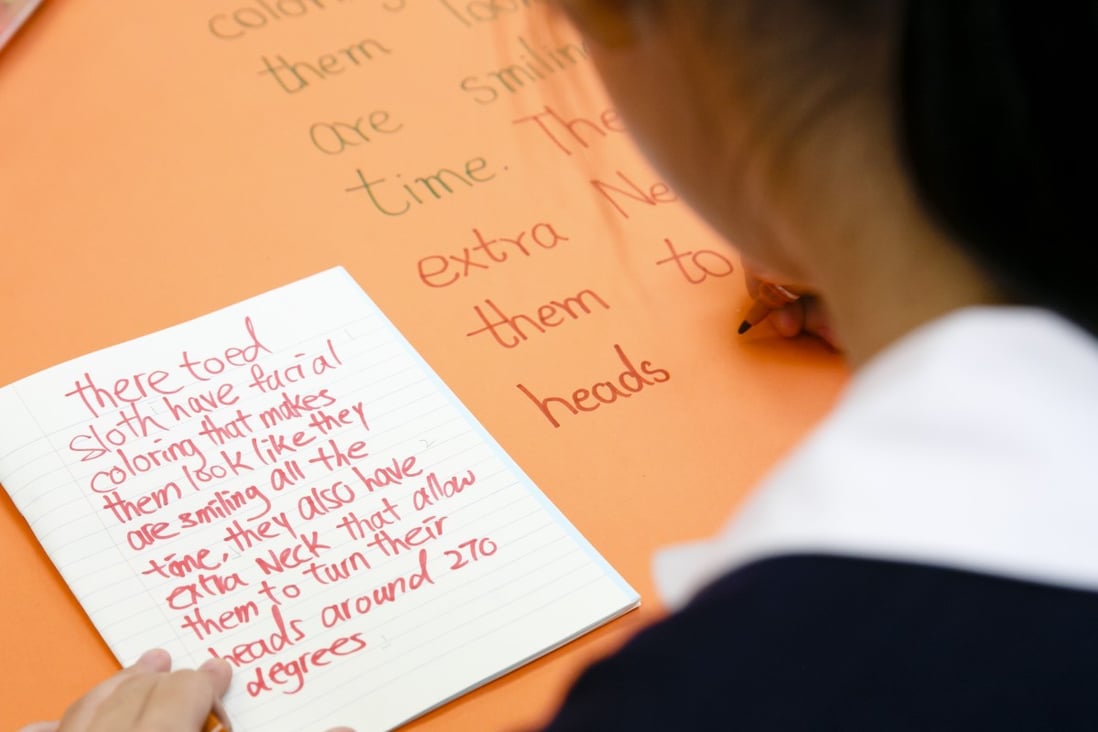 coloring
them look
are smilin
time. The
extra Ne
them to
heads
there toed
sloth have facial
coloring that makes
them look like they
are smiling all the
time, they also have
extra Neck that allow
them to turn their
heads around 270
degrees